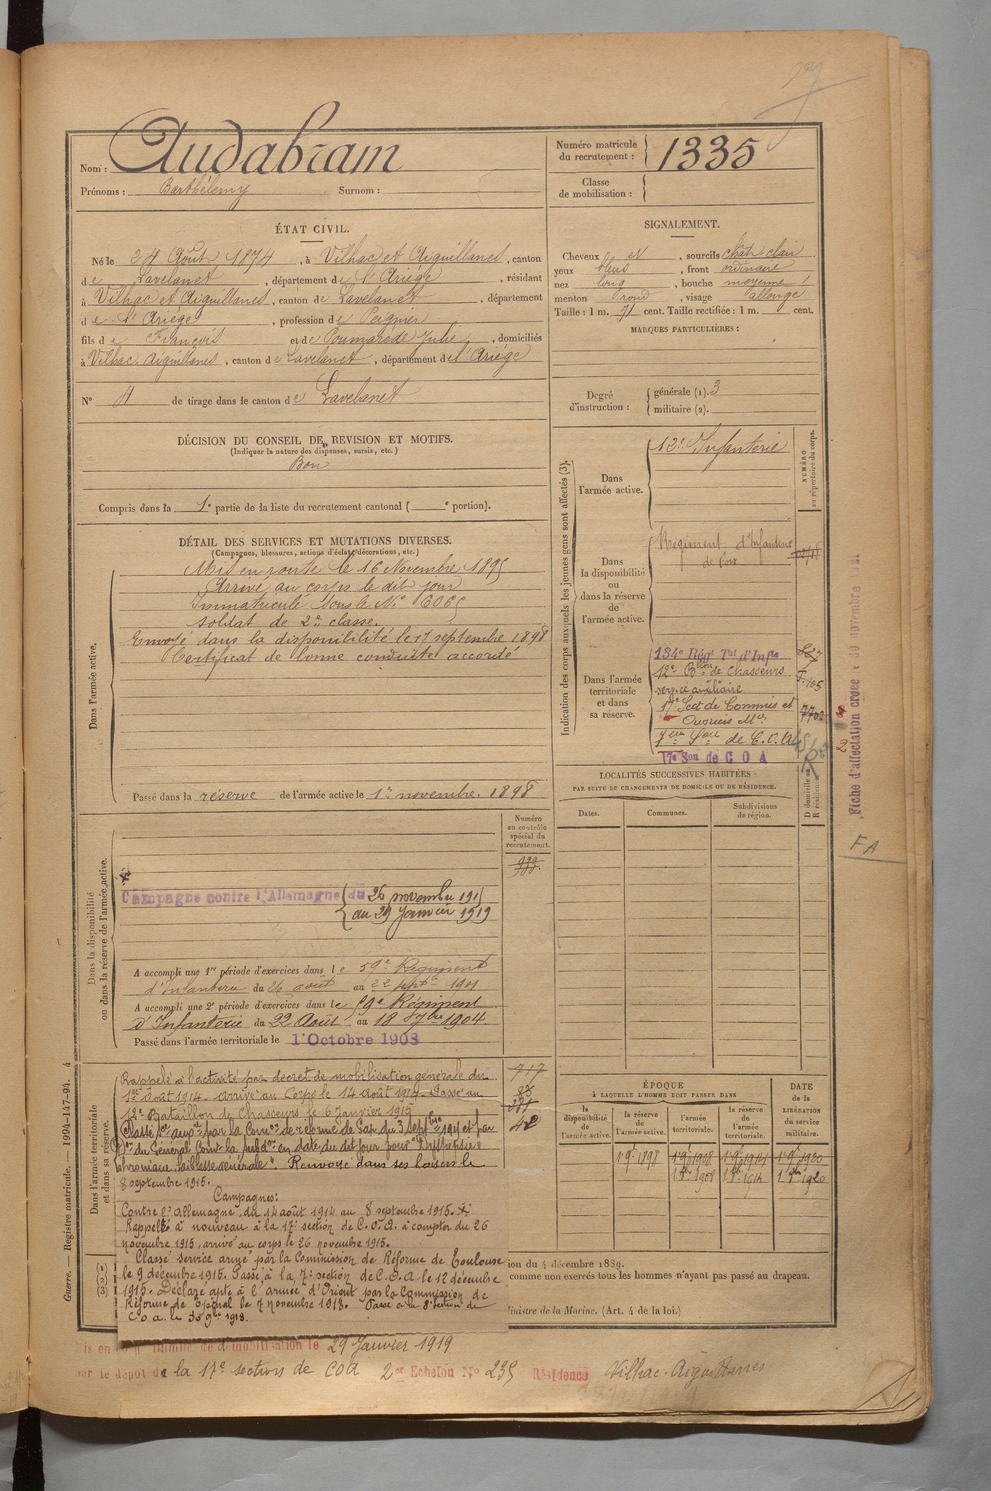 Nom : Audabram
Prénoms : Barthélemy Surnom :
Numéro matricule du recrutement : 1335
Classe de mobilisation :
ÉTAT CIVIL.
Né le 24 Août 1874, à Vilhac et Aiguillanes, canton
de Lavelanet, département de l'Ariége, résidant
à Vilhac et Aiguillanes, canton de Lavelanet, département
de l'Ariége, profession de Peigner
fils de François et de Coumarade Julie, domiciliés
à Vilhac Aiguillanes, canton de Lavelanet, département de l'Ariége
N° 4 de tirage dans le canton de Lavelanet
SIGNALEMENT.
Cheveux et, sourcils chât clair
yeux bleus, front ordinaire
nez long, bouche moyenne
menton rond, visage allongé
Taille : 1 m. 71 cent. Taille rectifiée : 1 m. cent.
MARQUES PARTICULIÈRES :
Degré d'instruction : générale (1). 3
militaire (2).
DÉCISION DU CONSEIL DE REVISION ET MOTIFS.
(Indiquer la nature des dispenses, sursis, etc.)
Bon
Compris dans la 1e partie de la liste du recrutement cantonal ( e portion).
DÉTAIL DES SERVICES ET MUTATIONS DIVERSES.
(Campagnes, blessures, actions d'éclat, décorations, etc.)
Dans l'armée active.
Mis en route le 16 Novembre 1895
Arrivé au corps le dit jour
Immatriculé sous le N° 6065
soldat de 2e classe.
Envoyé dans la disponibilité le 17 septembre 1898
Certificat de bonne conduite accordé
Passé dans la réserve de l'armée active le 1er novembre 1898
Indication des corps auxquels les jeunes gens sont affectés (3).
NUMÉRO au répertoire du corps.
Dans l'armée active.
12e Infanterie
Dans la disponibilité ou dans la réserve de l'armée active.
Régiment d'Infanterie
de Foix
Dans l'armée territoriale et dans sa réserve.
134e Régt Tal d'Infie
12e Bon de Chasseurs
service auxiliaire
17e Sect de Commis et
Ouvriers Mres
7eme Son de C.O.A
17e Son de C O A
LOCALITÉS SUCCESSIVES HABITÉES
PAR SUITE DE CHANGEMENTS DE DOMICILE OU DE RÉSIDENCE.
Dates. Communes. Subdivisions de région.
Fiche d'affectation créée le 30 novembre 1921
FA
Dans la disponibilité ou dans la réserve de l'armée active.
Numéro au contrôle spécial du recrutement.
Campagne contre l'Allemagne du 26 novembre 1915
au 29 Janvier 1919
A accompli une 1re période d'exercices dans le 59e Régiment
d'Infanterie du 26 août au 22 septe 1901
A accompli une 2e période d'exercices dans le 59e Régiment
d'Infanterie du 22 Août au 18 7bre 1904
Passé dans l'armée territoriale le 1er Octobre 1908
Dans l'armée territoriale et dans sa réserve.
917
Rappelé à l'activité par décret de mobilisation générale du
1er août 1914. Arrivé au Corps le 14 Août 1914. Passé au
12e Bataillon de Chasseurs le 6 Janvier 1915
Classé Sce auxre par la Comon de réforme de Gap du 3 septbre 1915 et par
du Général en date du dit jour pour
chronique, faiblesse générale". Renvoyé dans ses foyers le
8 septembre 1915.
Campagnes:
Contre l'Allemagne, du 14 août 1914 au 8 septembre 1915.
Rappelé à nouveau à la 17e section de C.O.A. à compter du 26
novembre 1915, arrivé au corps le 26 novembre 1915.
Classé service armé par la Commission de Réforme de Toulouse
le 9 décembre 1915. Passé à la 7e section de C.O.A. le 12 décembre
1915. Déclaré apte à l'armée d'Orient par la Commission de
Réforme de Epinal le 7 novembre 1918. Passé à la 8e section de
C.O.A. le 30 9bre 1918.
ÉPOQUE
À LAQUELLE L'HOMME DOIT PASSER DANS
DATE DE LA LIBÉRATION DU SERVICE militaire.
la disponibilité de l'armée active. la réserve de l'armée active. l'armée territoriale. la réserve de l'armée territoriale.
1 9e 1898
ion du 4 décembre 1889.
comme non exercés tous les hommes n'ayant pas passé au drapeau.
Ministre de la Marine. (Art. 4 de la loi.)
Guerre. — Registre matricule. — 1994-147-94. 4
illimité de démobilisation le 29 Janvier 1919
par le dépôt de la 17e section de COA 2er Echelon N° 235 Résidence Vilhac-Aiguillanes